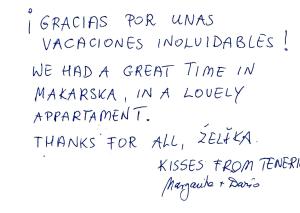 ¡ GRACIAS POR UNAS
VACACIONES INOLVIDABLES !
WE HAD A GREAT TIME IN
MAKARSKA, IN A LOVELY
APPARTAMENT.
THANKS FOR ALL, ŽELJKA.
KISSES FROM TENERI
Margarita + Dario